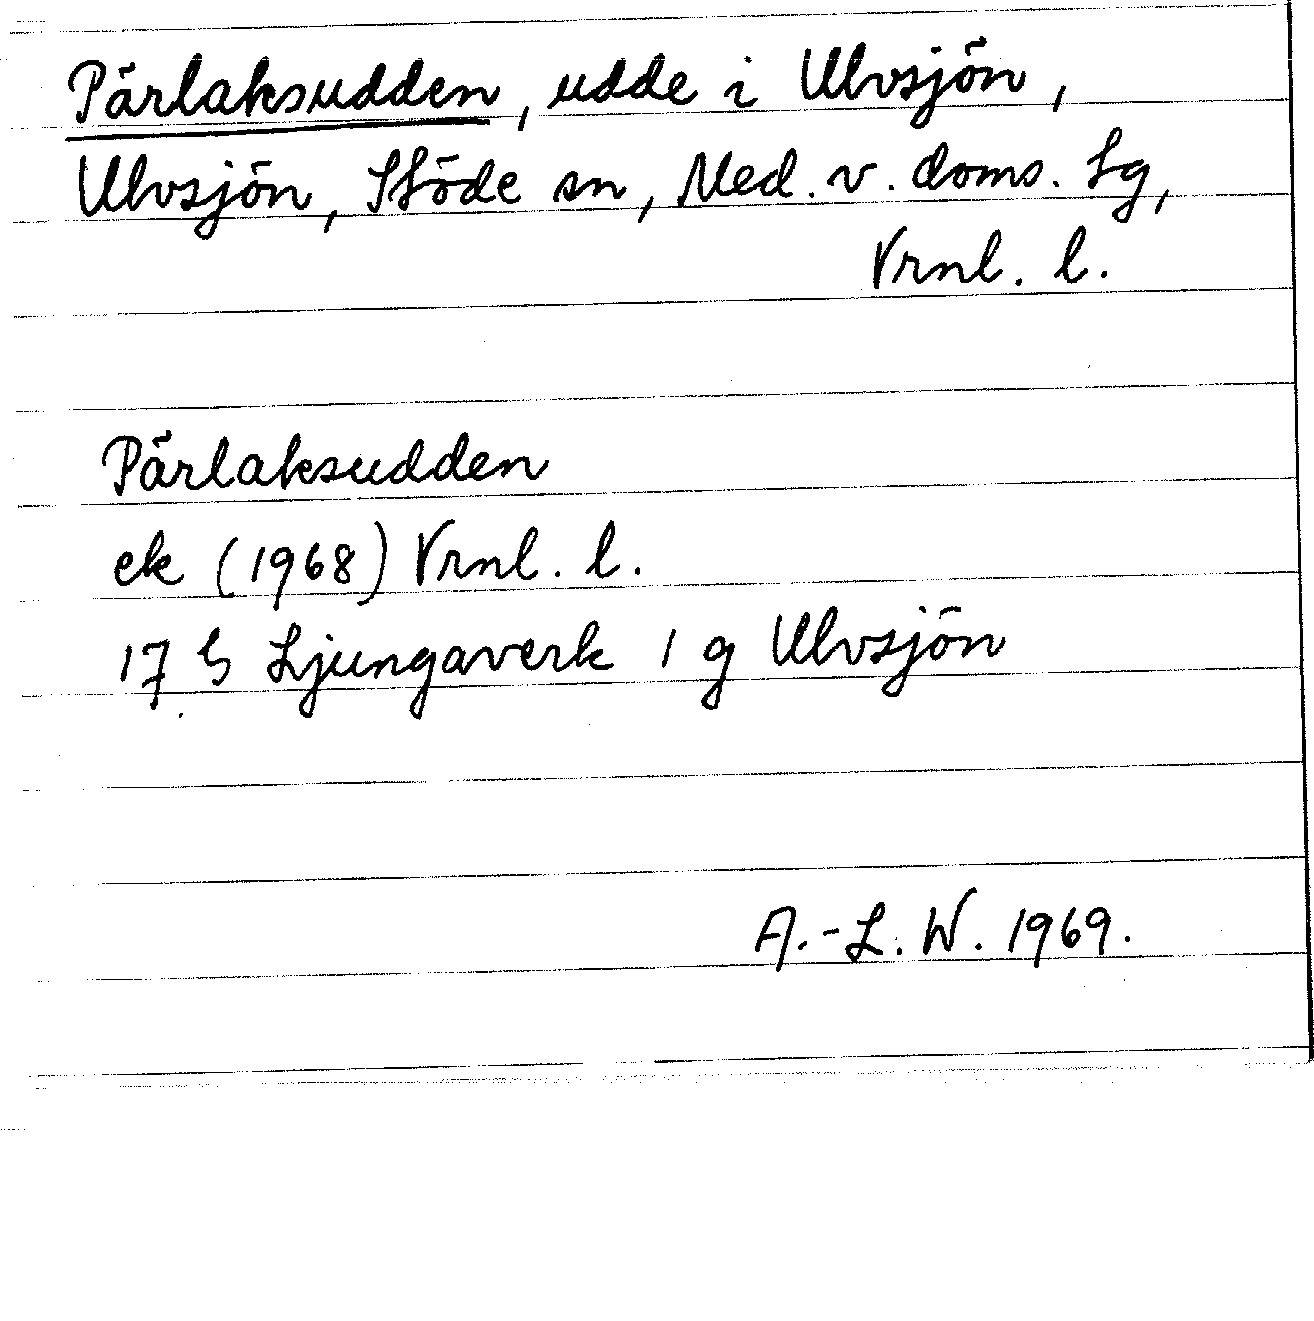 Pärlaksudden, udde i Ulvsjön,
Ulvsjön, Stöde sn, Med. v. doms. Lg,
Vrnl. l.
Pärlaksudden
ek (1968) Vrnl. l.
17 G Ljungaverk 1 g Ulvsjön
A.-L. W. 1969.